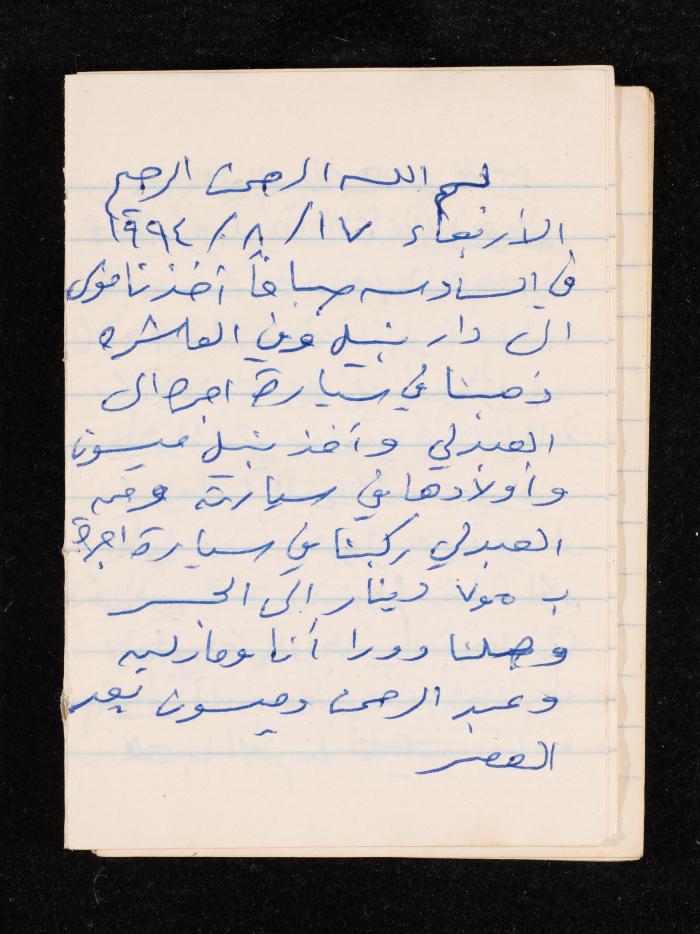 بسم الله الرحمن الرحيم
الأربعاء ١٧/٨/١٩٩٤
في السادسه صباحاً أخذنا
الى دار نبيل وفي العاشره
ذهبنا في سيارة اجره الى
العبدلي وأخذ نبيل ميسون
وأولادها في سيارته ومن
العبدلي ركبنا في سيارة اجرة
ب ٧٫٥ دينار الى الجسر
وصلنا دورا أنا
وعبد الرحمن وميسون بعد
العصر